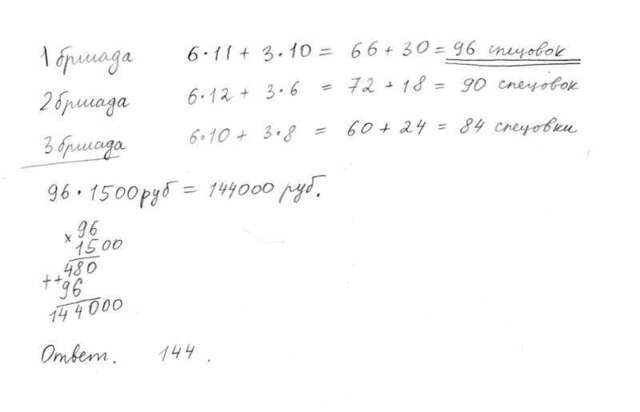 1 бригада 6·11 + 3·10 = 66 + 30 = 96 спецовок
2 бригада 6·12 + 3·6 = 72 + 18 = 90 спецовок
3 бригада 6·10 + 3·8 = 60 + 24 = 84 спецовки
96 · 1500 руб = 144000 руб.
× 96
1500
++ 480
96
144000
Ответ. 144 .